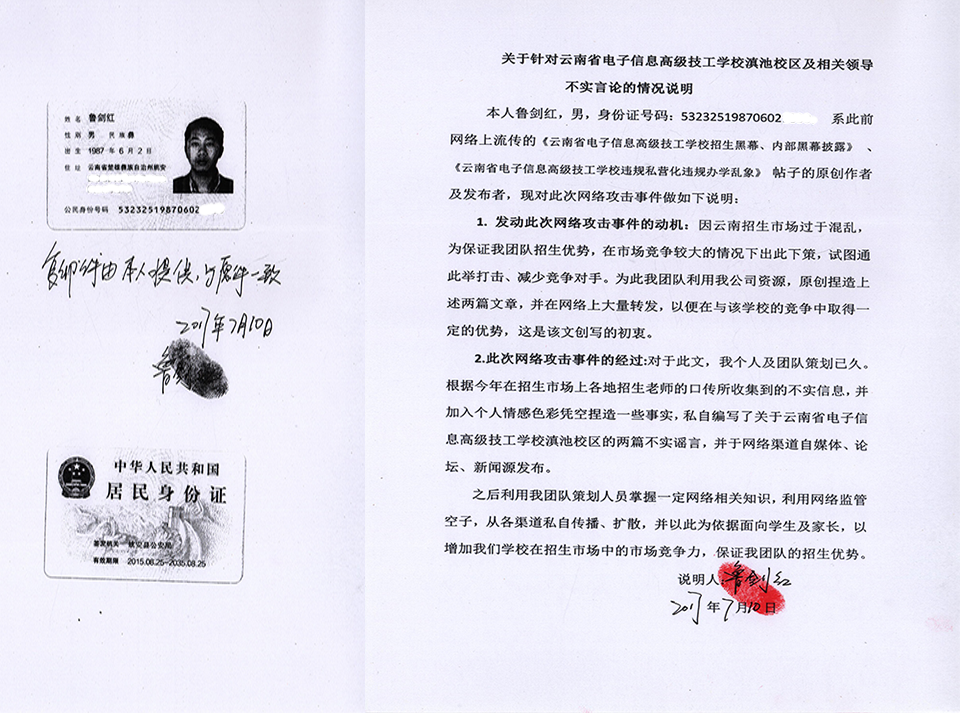 姓名 鲁剑红
性别 男 民族彝
出生 1987年6月2日
住址 云南省楚雄彝族自治州姚安
公民身份号码 53232519870602
复印件由本人提供,与原件一致
2017年7月10日
鲁
中华人民共和国
居民身份证
签发机关 姚安县公安局
有效期限 2015.08.25-2035.08.25
关于针对云南省电子信息高级技工学校滇池校区及相关领导
不实言论的情况说明
本人鲁剑红,男,身份证号码:53232519870602 系此前
网络上流传的《云南省电子信息高级技工学校招生黑幕、内部黑幕披露》、
《云南省电子信息高级技工学校违规私营化违规办学乱象》帖子的原创作者
及发布者,现对此次网络攻击事件做如下说明:
1. 发动此次网络攻击事件的动机:因云南招生市场过于混乱,
为保证我团队招生优势,在市场竞争较大的情况下出此下策,试图通
此举打击、减少竞争对手。为此我团队利用我公司资源,原创捏造上
述两篇文章,并在网络上大量转发,以便在与该学校的竞争中取得一
定的优势,这是该文创写的初衷。
2.此次网络攻击事件的经过:对于此文,我个人及团队策划已久。
根据今年在招生市场上各地招生老师的口传所收集到的不实信息,并
加入个人情感色彩凭空捏造一些事实,私自编写了关于云南省电子信
息高级技工学校滇池校区的两篇不实谣言,并于网络渠道自媒体、论
坛、新闻源发布。
之后利用我团队策划人员掌握一定网络相关知识,利用网络监管
空子,从各渠道私自传播、扩散,并以此为依据面向学生及家长,以
增加我们学校在招生市场中的市场竞争力,保证我团队的招生优势。
说明人:鲁剑红
2017年7月10日